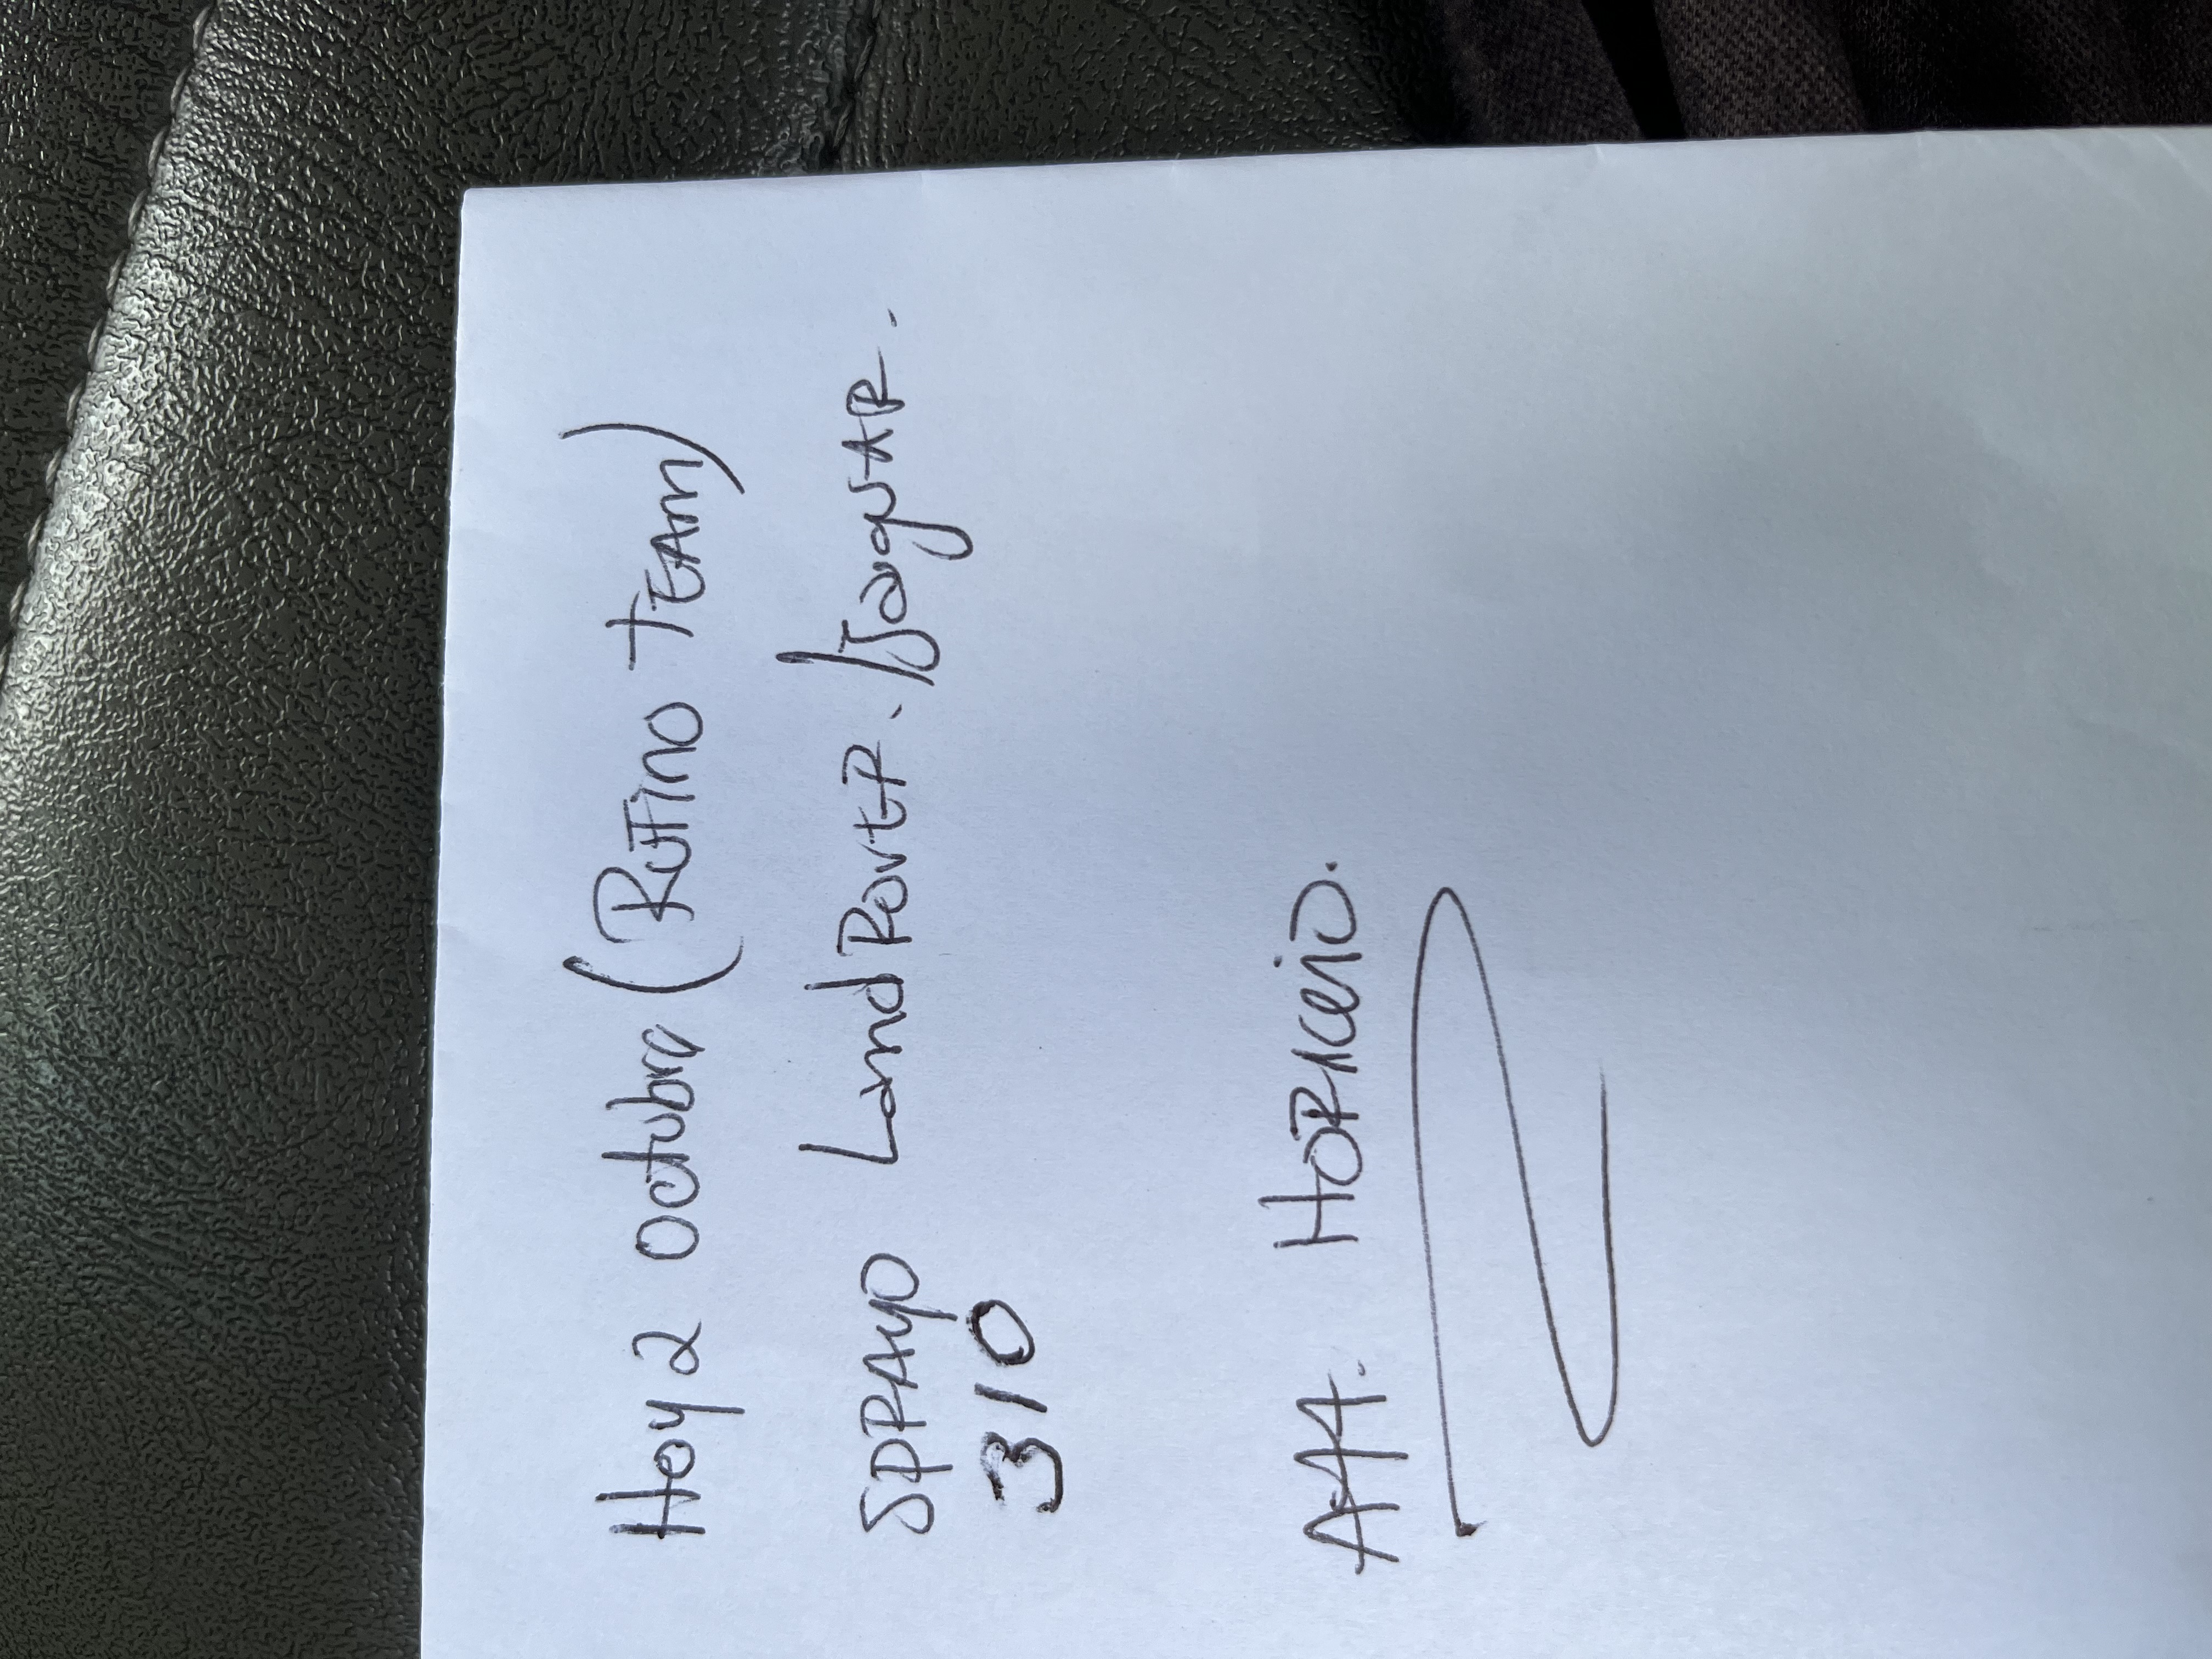 Hoy 2 octubre (Rufino Team)
SPRAYO Land Rover. / Jaguar.
310
Att. Horacio.